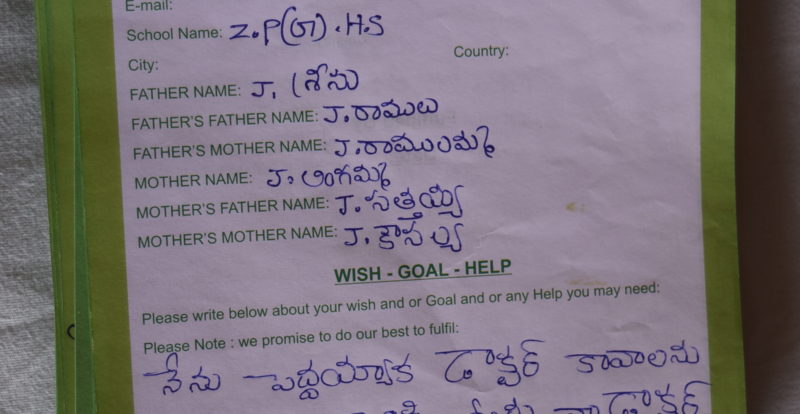 E-mail:
School Name: Z.P(G).H.S
City: Country:
FATHER NAME: J. శ్రీను
FATHER'S FATHER NAME: J.రాములు
FATHER'S MOTHER NAME: J.రాములమ్మ
MOTHER NAME: J. లింగమ్మ
MOTHER'S FATHER NAME: J.సత్తయ్య
MOTHER'S MOTHER NAME: J. కౌసల్య
WISH - GOAL - HELP
Please write below about your wish and or Goal and or any Help you may need:
Please Note : we promise to do our best to fulfil:
నేను పెద్దయ్యాక డాక్టర్ కావాలను
డాక్టర్